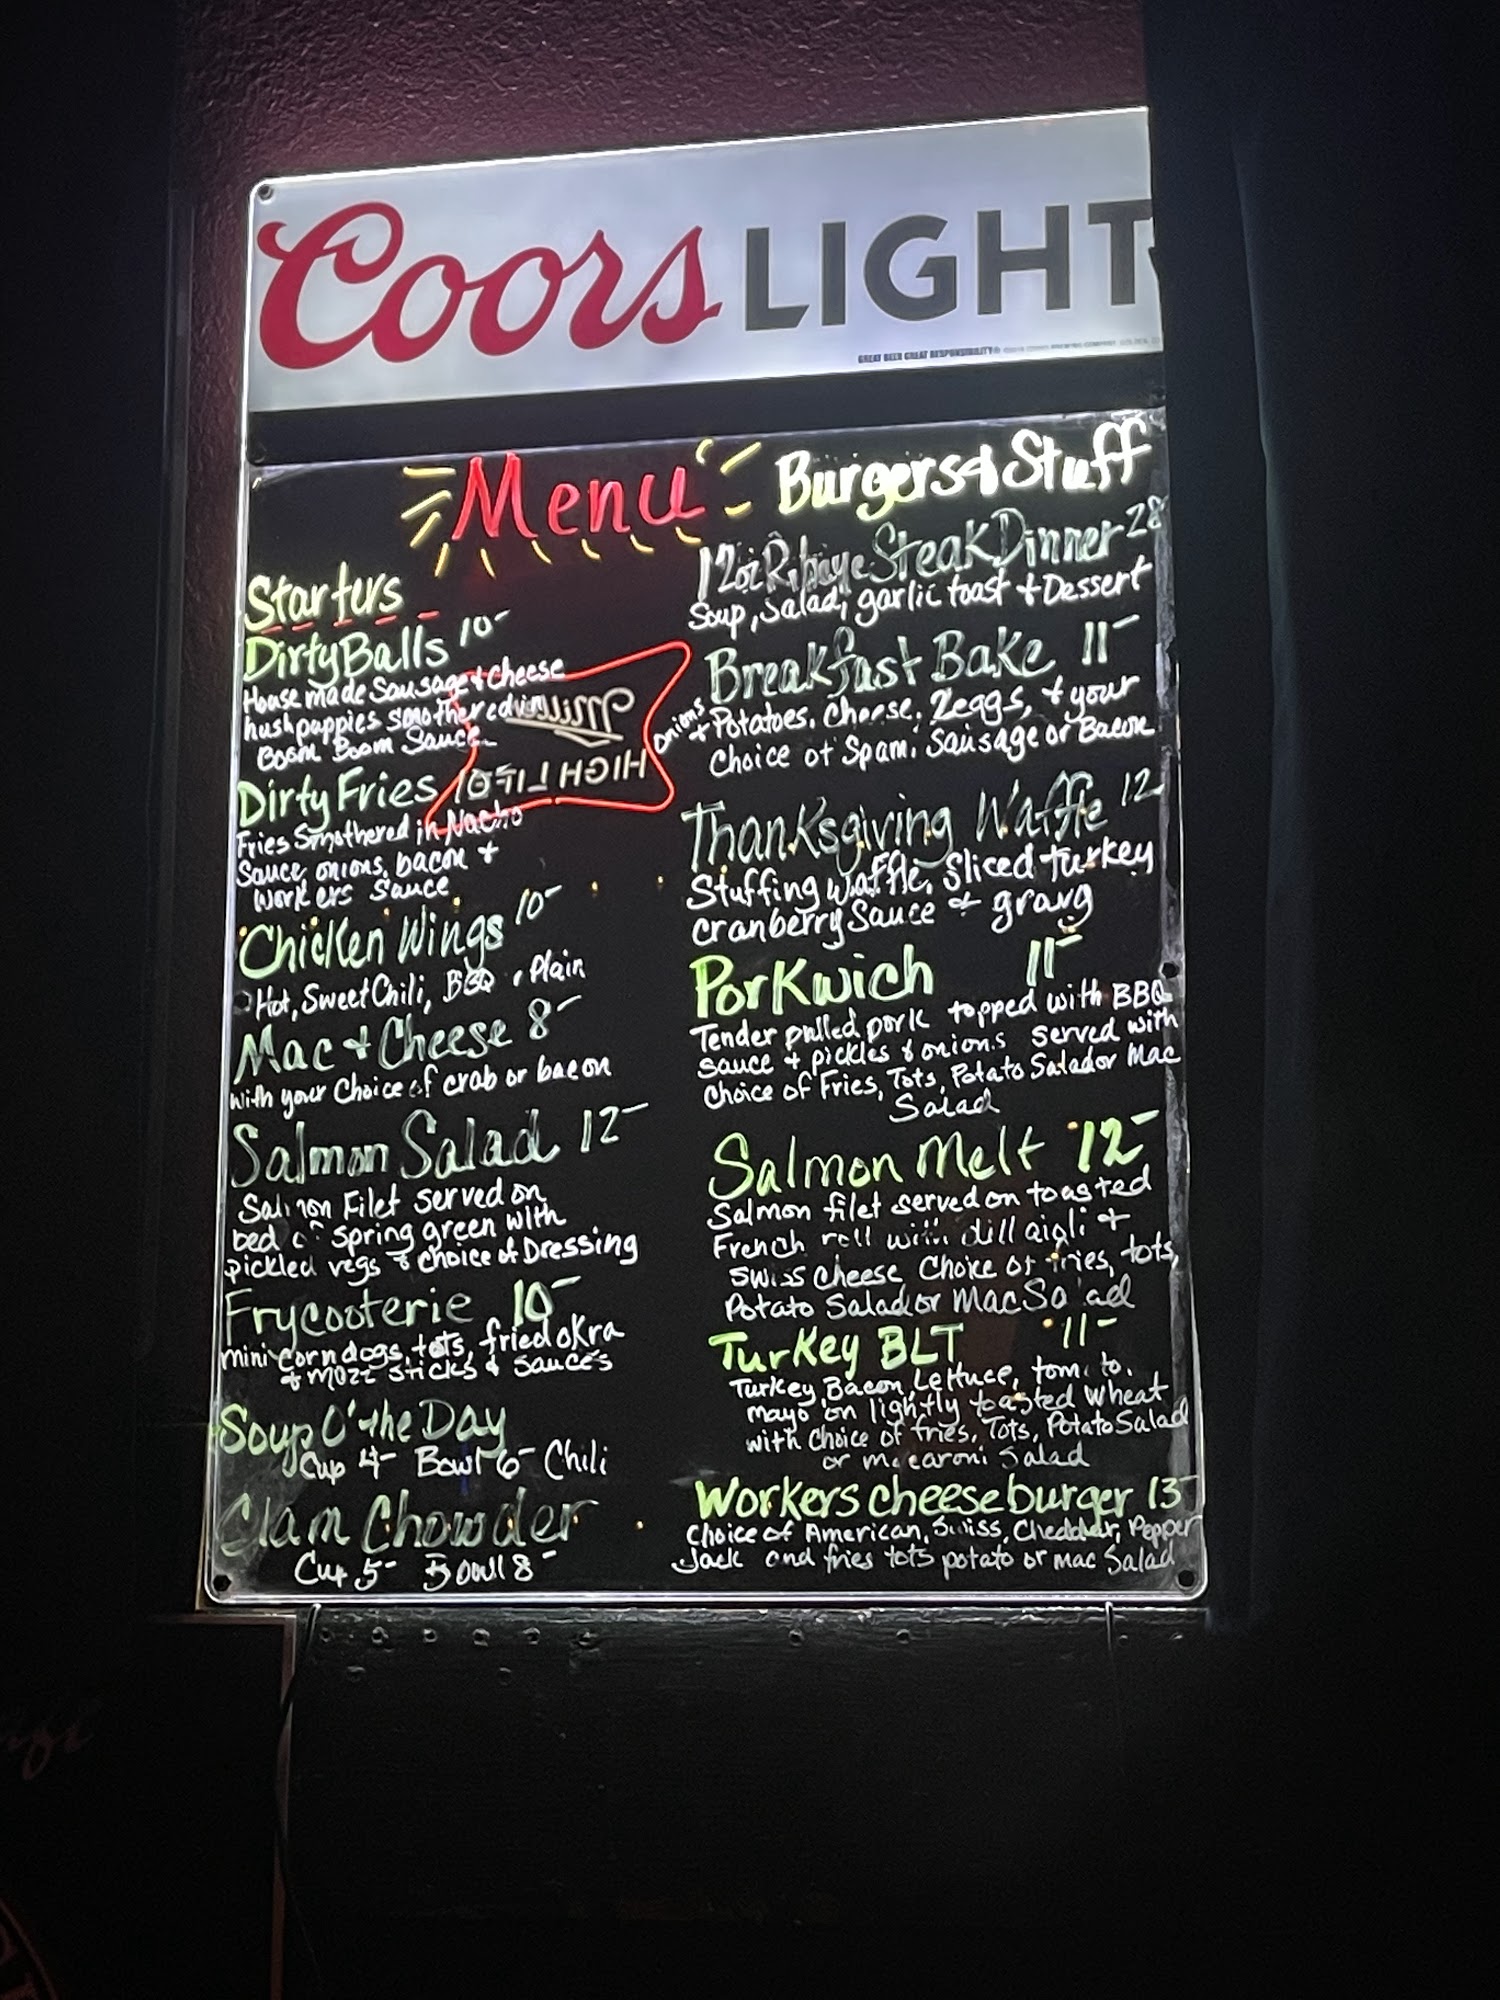 Coors LIGHT
GREAT BEER GREAT RESPONSIBILITY®
Menu
Starters
Dirty Balls 10-
House made Sausage & Cheese
hushpuppies smothered in
Boom Boom Sauce
Dirty Fries 10-
Fries Smothered in Nacho
Sauce, onions, bacon &
Workers Sauce
Chicken Wings 10-
Hot, Sweet Chili, BBQ, Plain
Mac & Cheese 8-
with your Choice of crab or bacon
Salmon Salad 12-
Salmon Filet served on
bed of spring green with
pickled vegs & choice of Dressing
Frycooterie 10-
mini corndogs, tots, fried okra
& mozz sticks & sauces
Soup O' the Day
Cup 4- Bowl 6- Chili
Clam Chowder
Cup 5- Bowl 8-
Miller
HIGH LIFE
Burgers & Stuff
12oz Ribeye Steak Dinner 28
Soup, Salad, garlic toast & Dessert
Breakfast Bake 11-
onions & Potatoes, Cheese, 2 eggs, & your
Choice of Spam, Sausage or Bacon
Thanksgiving Waffle 12-
Stuffing waffle, Sliced turkey
cranberry Sauce & gravy
Porkwich 11-
Tender pulled pork topped with BBQ
Sauce & pickles & onions served with
Choice of Fries, Tots, Potato Salad or Mac
Salad
Salmon Melt 12-
Salmon filet served on toasted
French roll with dill aioli &
Swiss cheese Choice of fries, tots,
Potato Salad or Mac Salad
Turkey BLT 11-
Turkey, Bacon, Lettuce, tomato,
mayo on lightly toasted wheat
with choice of fries, Tots, Potato Salad
or macaroni Salad
Workers cheeseburger 13-
Choice of American, Swiss, Cheddar, Pepper
Jack and fries tots potato or mac Salad